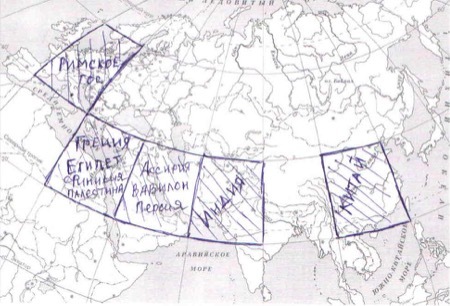 ЛЕДОВИТЫЙ
РИМСКОЕ
ГОС
ГРЕЦИЯ
ЕГИПЕТ
Финикия
ПАЛЕСТИНА
Ассирия
ВАВИЛОН
Персия
ИНДИЯ
КИТАЙ
АРАВИЙСКОЕ
МОРЕ
ЮЖНО-КИТАЙСКОЕ
МОРЕ
ОКЕАН